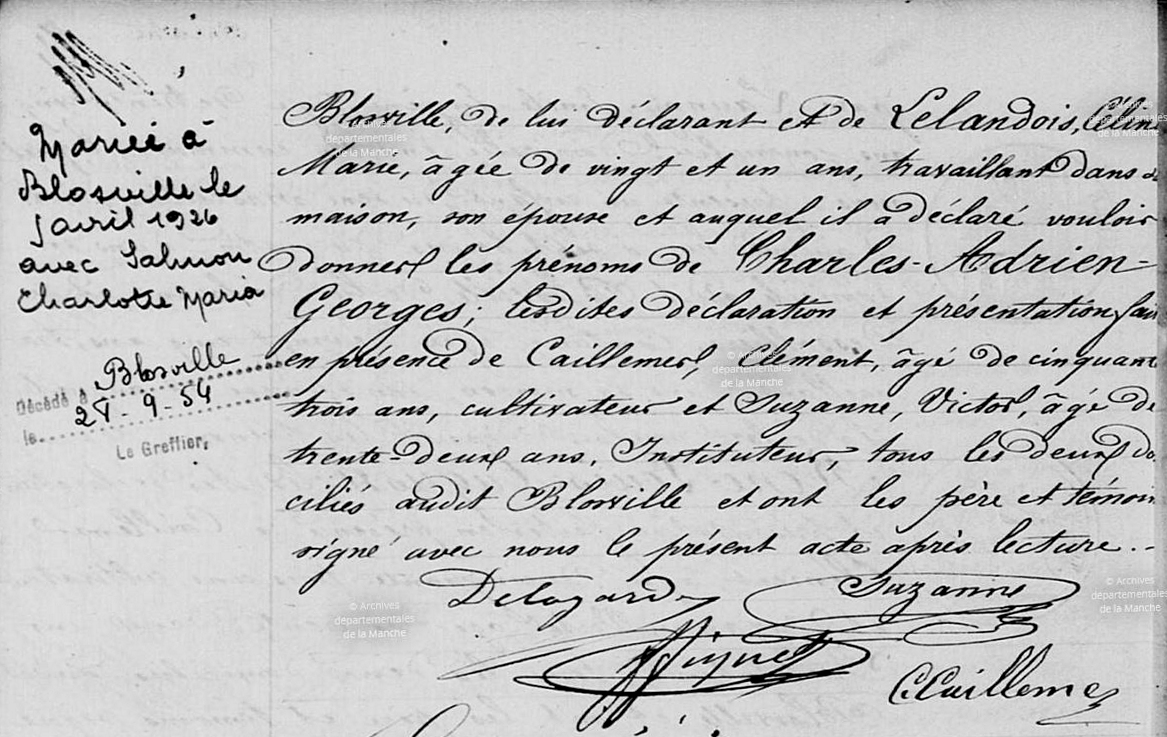 Mariée à
Blosville le
5 avril 1926
avec Salmon
Charlotte Maria
Décédé à Blosville
le 27-9-54
Le Greffier,
Blosville, de lui déclarant et de Lelandois,
Marie, âgée de vingt et un ans, travaillant dans
maison, son épouse et auquel il a déclaré vouloir
donner les prénoms de Charles-Adrien-
Georges; lesdites déclaration et présentation fai
en présence de Caillemer, Clément, âgé de cinquante
trois ans, cultivateur et Suzanne, Victor, âgé de
trente-deux ans, Instituteur, tous les deux do
ciliés audit Blosville et ont les père et témoin
signé avec nous le présent acte après lecture.-
Delagarde Suzanne
C. Caillemer
© Archives
départementales
de la Manche
© Archives
départementales
de la Manche
© Archives
départementales
de la Manche
© Archives
départementales
de la Manche
© Archives
départementales
de la Manche